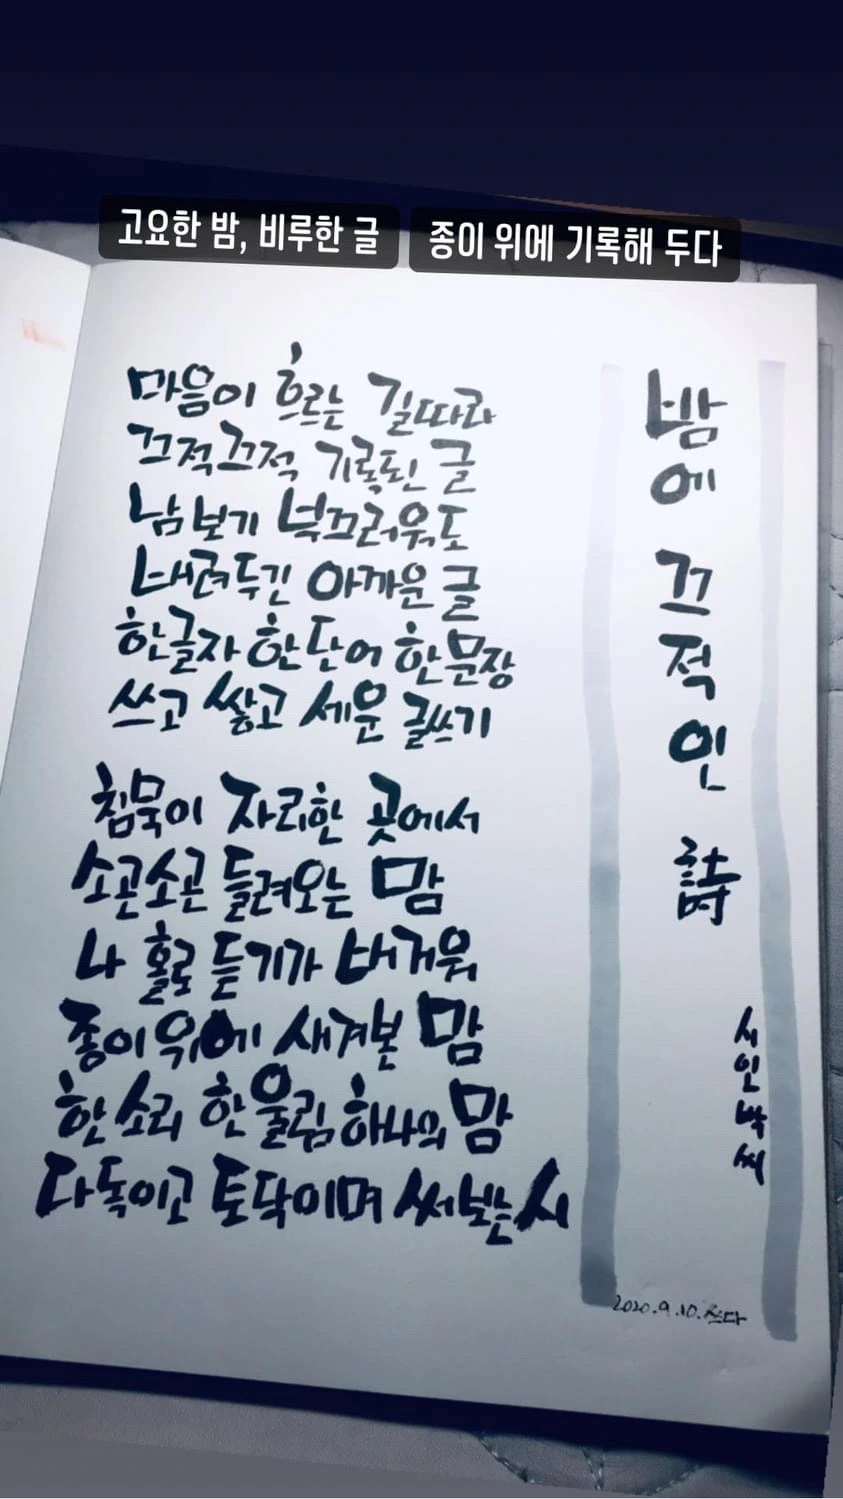 고요한 밤, 비루한 글
종이 위에 기록해 두다
밤에 끄적인 詩
시인박씨
마음이 흐르는 길따라
끄적끄적 기록된 글
남 보기 넉끄러워도
내려두긴 아까운 글
한글자 한단어 한문장
쓰고 쌓고 세운 글쓰기
침묵이 자리한 곳에서
소곤소곤 들려오는 맘
나 홀로 듣기가 버거워
종이위에 새겨본 맘
한소리 한울림 하나의 맘
다독이고 토닥이며 써보는 시
2020.9.10. 쓰다